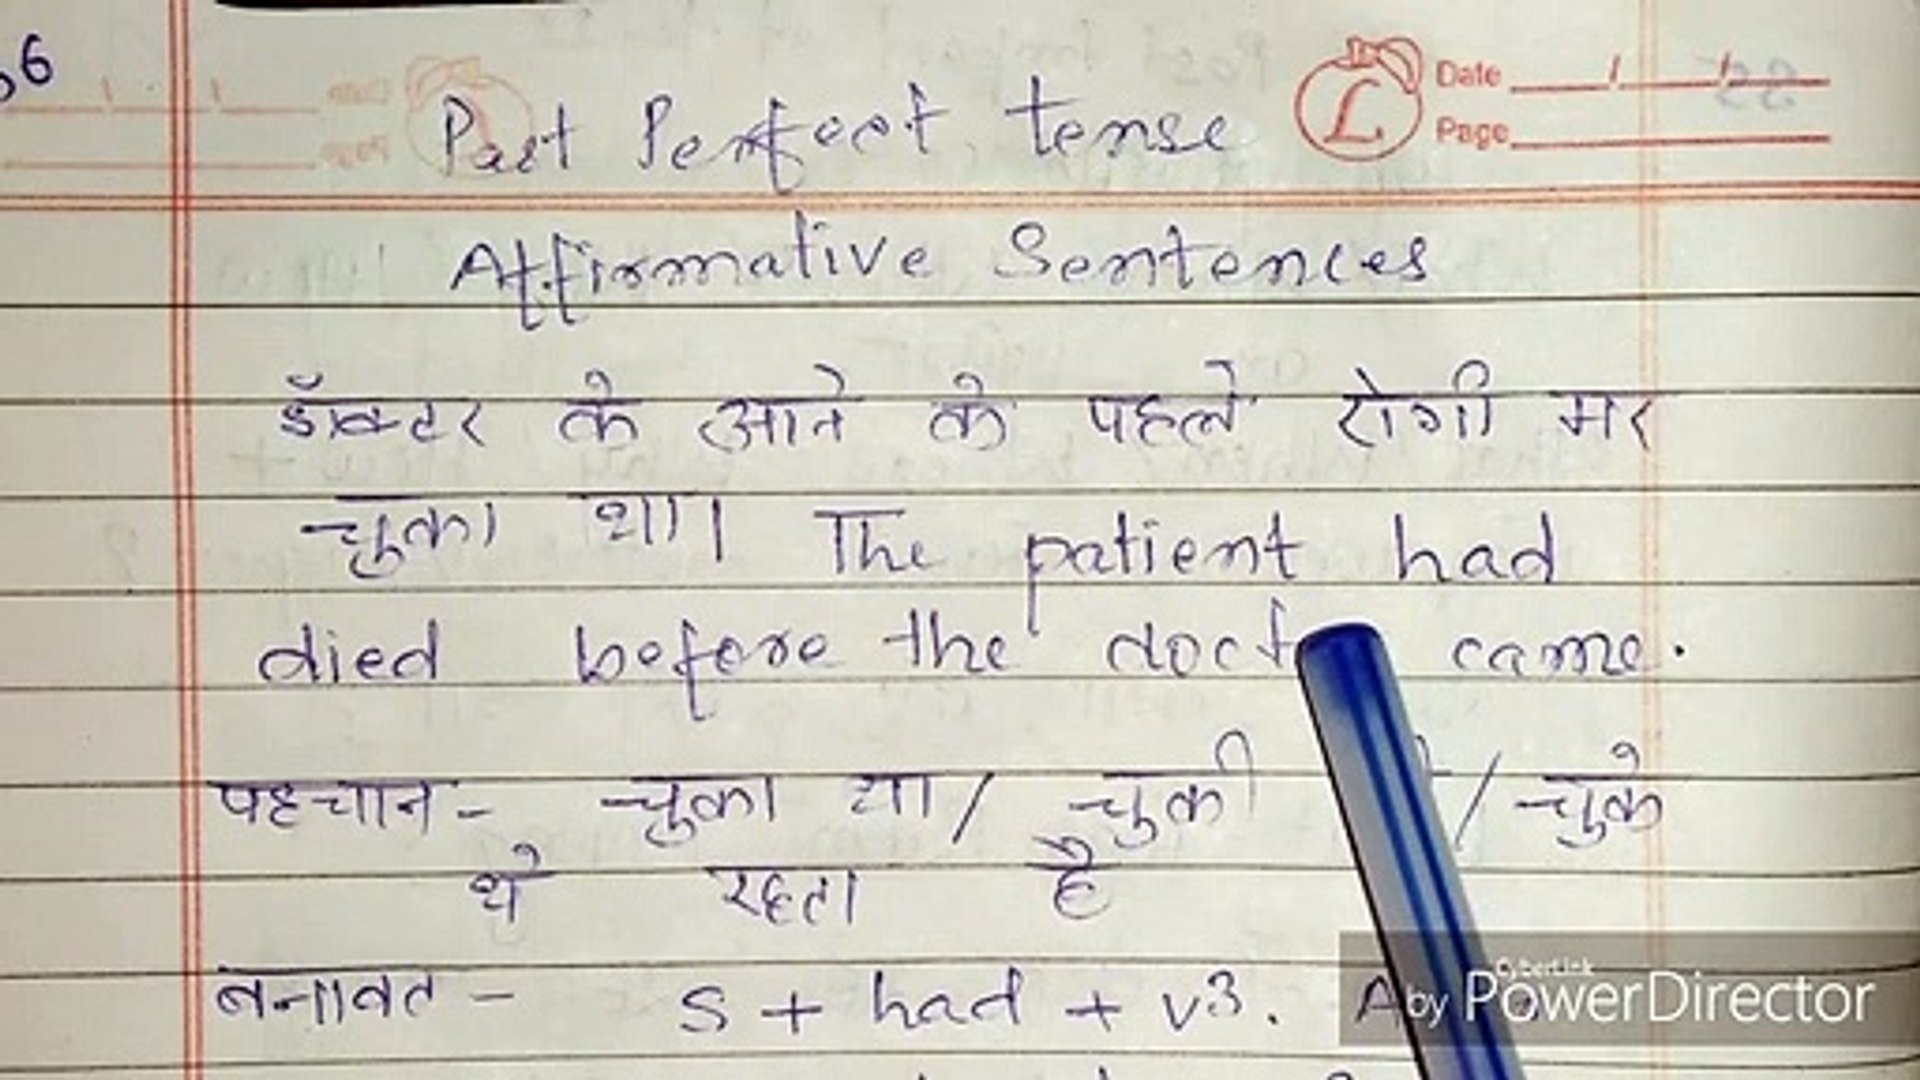 36
Date
Page
Past Perfect tense
Affirmative Sentences
डॉक्टर के आने के पहले रोगी मर
चुका था। The patient had
died before the doct came.
पहचान - चुका था / चुकी / चुके
थे रहता है
बनावट - S + had + v3. A
CyberLink
by PowerDirector